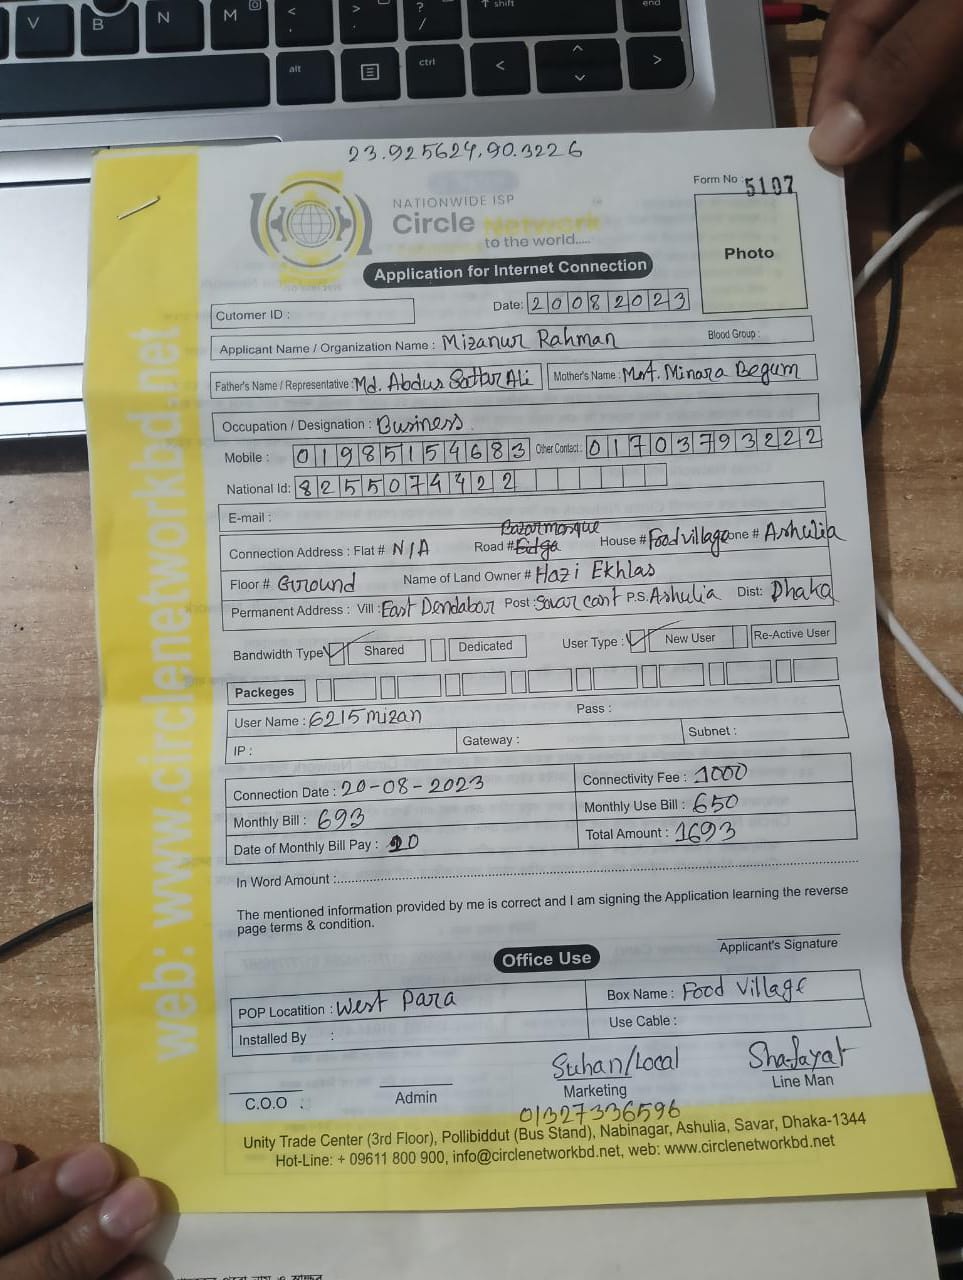 V B N M < , > . ? / ↑ shift end
alt ctrl < ^ >
23.925624,90.3226
Form No : 5107
NATIONWIDE ISP
Circle Network
to the world.....
Photo
Application for Internet Connection
Cutomer ID :
Date: 20082023
Applicant Name / Organization Name : Mizanur Rahman Blood Group :
Father's Name / Representative : Md. Abdus Sattar Ali Mother's Name : Mst. Minara Begum
Occupation / Designation : Business
Mobile : 01985154683 Other Contact : 01703793222
National Id: 8255074422
E-mail :
Bazar mosque
Connection Address : Flat # N/A Road # Eidga House # Food village one # Ashulia
Floor # Ground Name of Land Owner # Hazi Ekhlas
Permanent Address : Vill : East Dendabor Post : Savar cant P.S. Ashulia Dist: Dhaka
Bandwidth Type Shared Dedicated User Type : New User Re-Active User
Packeges
User Name : 6215mizan Pass :
IP : Gateway : Subnet :
Connection Date : 20-08-2023 Connectivity Fee : 1000
Monthly Bill : 693 Monthly Use Bill : 650
Date of Monthly Bill Pay : 20 Total Amount : 1693
In Word Amount :
The mentioned information provided by me is correct and I am signing the Application learning the reverse
page terms & condition.
Applicant's Signature
Office Use
POP Locatition : West Para Box Name : Food Village
Installed By : Use Cable :
Suhan/Local Shafayat
C.O.O : Admin Marketing Line Man
01327336596
Unity Trade Center (3rd Floor), Pollibiddut (Bus Stand), Nabinagar, Ashulia, Savar, Dhaka-1344
Hot-Line: + 09611 800 900, info@circlenetworkbd.net, web: www.circlenetworkbd.net
web: www.circlenetworkbd.net